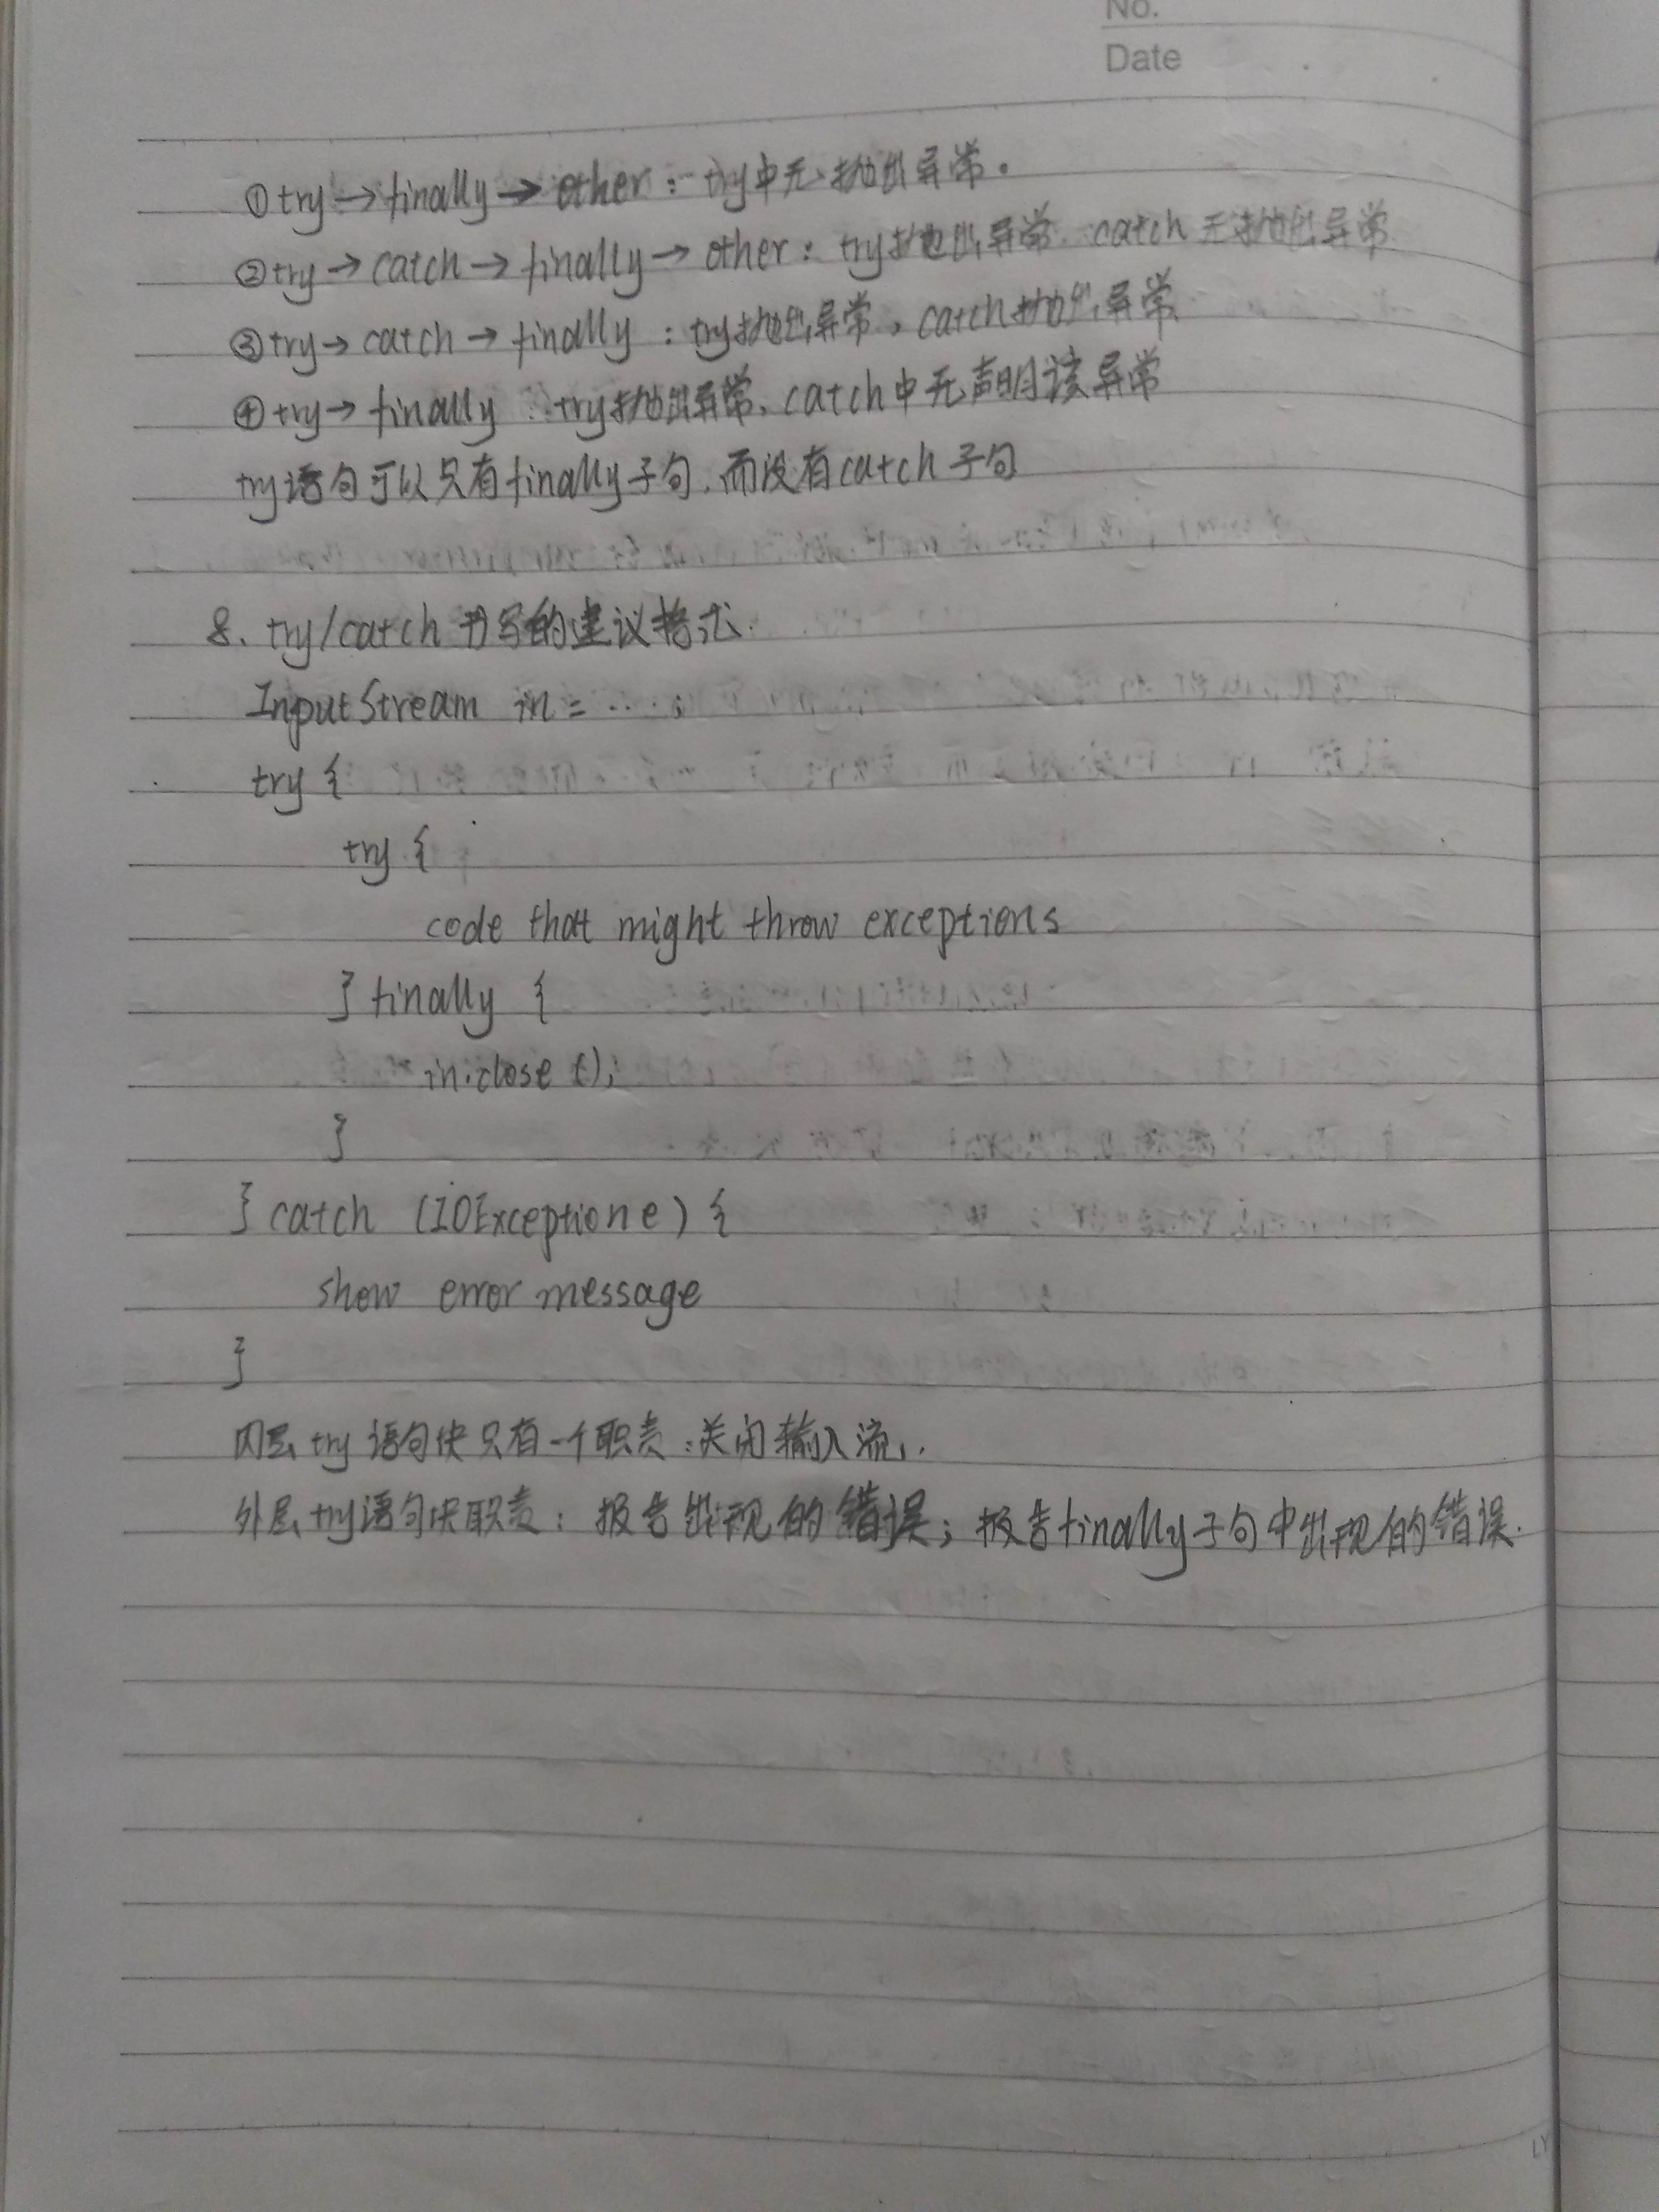 No.
Date
①try→finally→other：try中无抛出异常。
②try→catch→finally→other：try抛出异常，catch无抛出异常
③try→catch→finally：try抛出异常，catch抛出异常
④try→finally：try抛出异常，catch中无声明该异常
try语句可以只有finally子句，而没有catch子句
8、try/catch书写的建议格式.
InputStream in = ...;
try {
try {
code that might throw exceptions
} finally {
in.close();
}
} catch (IOException e) {
show error message
}
内层try语句块只有一个职责：关闭输入流，.
外层try语句块职责：报告出现的错误；报告finally子句中出现的错误.